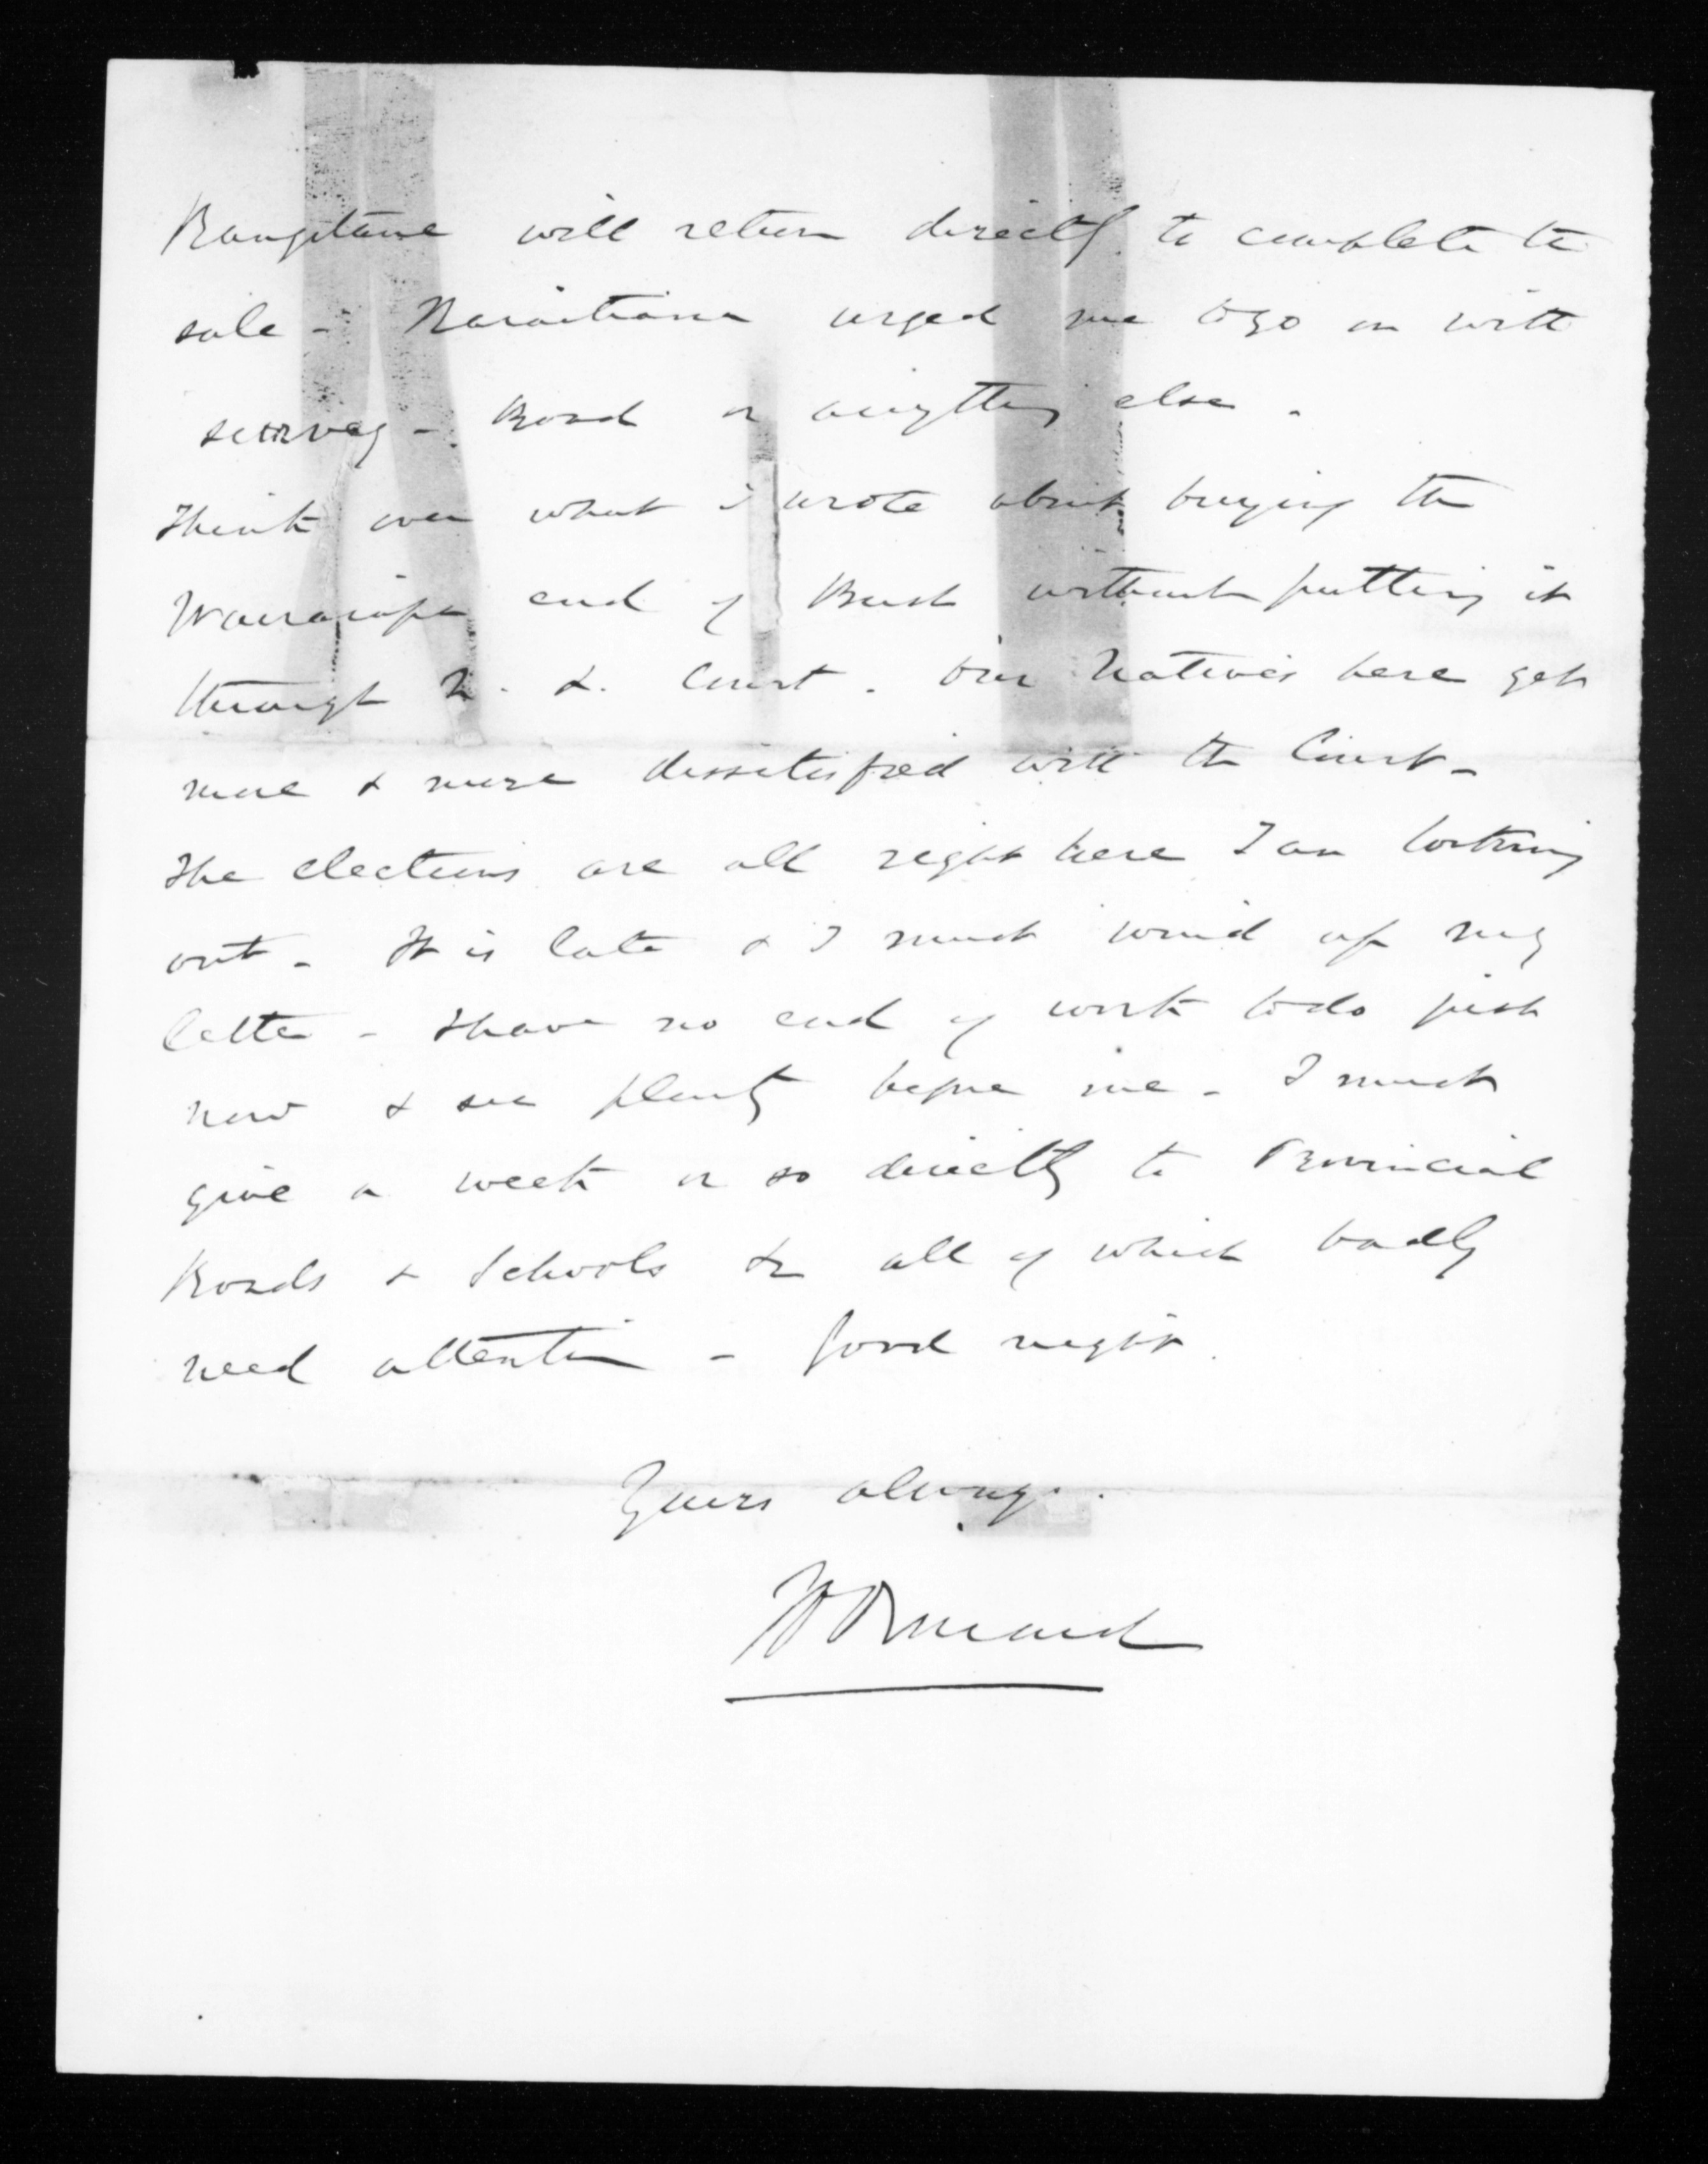 Rangitane will return directly to complete the
sale - Karaitiana urged me to go on with
survey - Road or anything else .
Think over what I wrote about buying the
Wairarapa end of Bush without putting it
through N. L. Court . Our Natives here get
more & more dissatisfied with the Court -
The elections are all right here I am looking
out - It is late & I must wind up my
letter - I have no end of work to do just
now & see plenty before me - I must
give a week or so directly to Provincial
Roads & Schools &c all of which badly
need attention - Good night .
Yours always .
JD Ormond